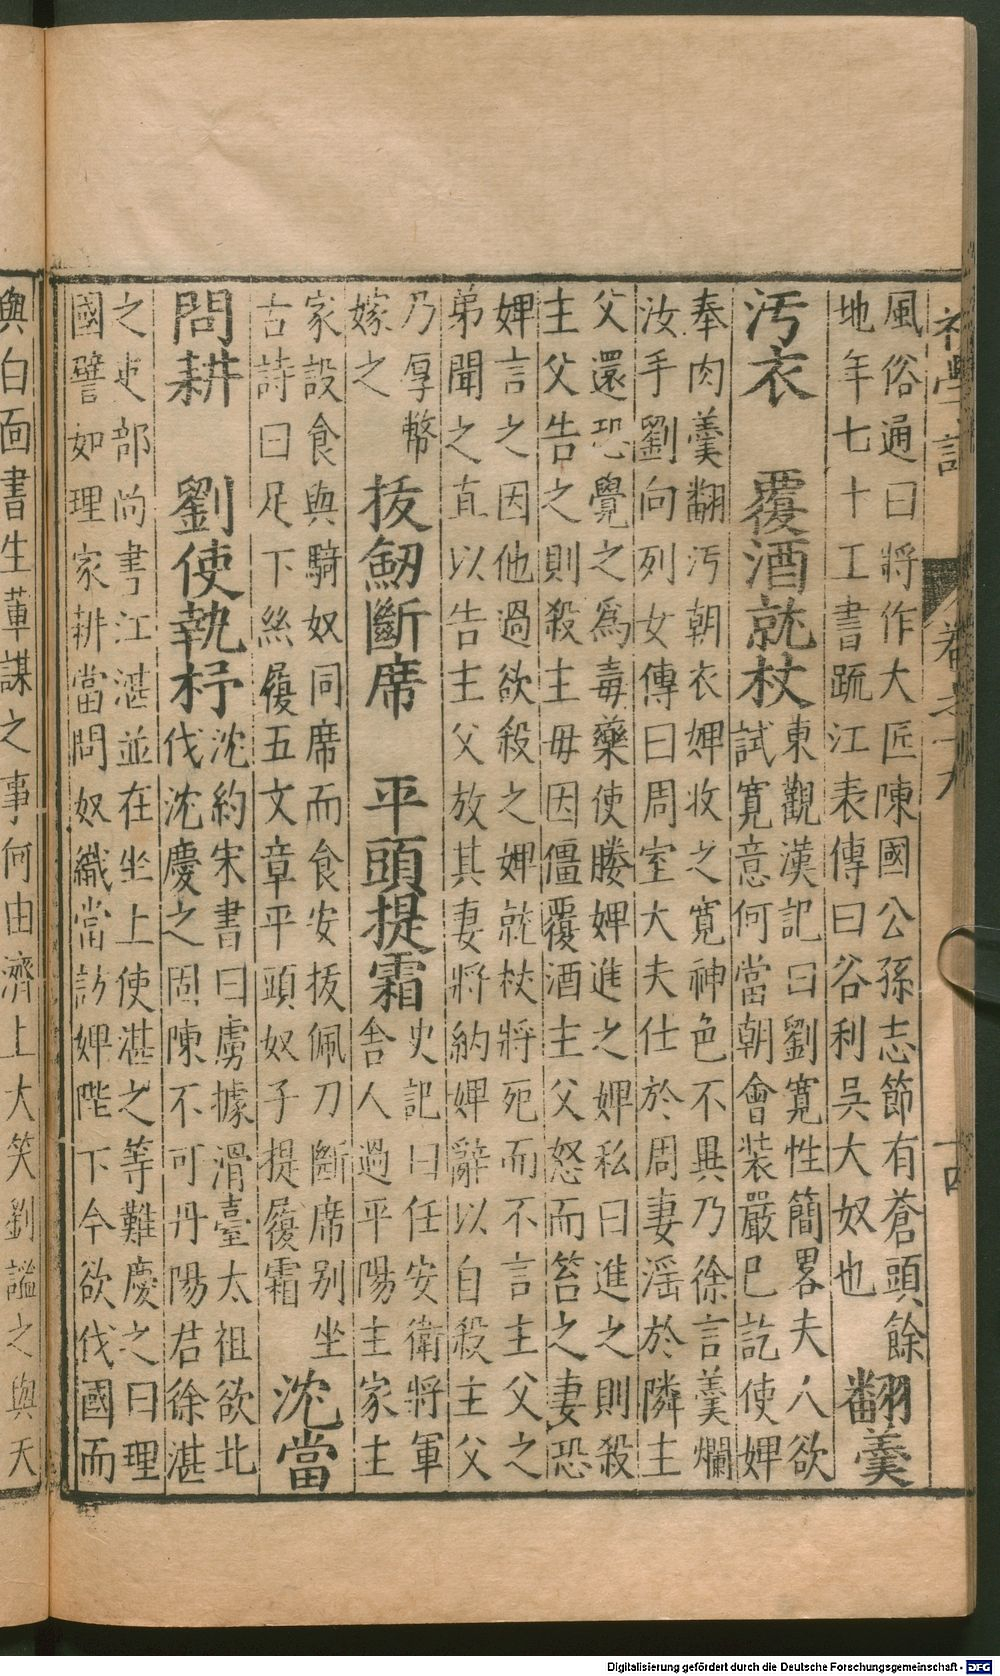 初學記 卷之十九 十四
風俗通曰將作大匠陳國公孫志節有蒼頭餘
地年七十工書疏江表傳曰谷利吳大奴也
翻羹
汚衣 覆酒就杖
東觀漢記曰劉寬性簡畧夫人欲
試寬意何當朝會裝嚴巳訖使婢
奉肉羹翻汚朝衣婢收之寬神色不異乃徐言羹爛
汝手劉向列女傳曰周室大夫仕於周妻淫於隣主
父還恐覺之爲毒藥使媵婢進之婢私曰進之則殺
主父告之則殺主母因僵覆酒主父怒而笞之妻恐
婢言之因他過欲殺之婢就杖將死而不言主父之
弟聞之直以告主父放其妻將納婢辭以自殺主父
乃厚幣
嫁之
拔劒斷席 平頭提霜
史記曰任安衛將軍
舍人過平陽主家主
家設食與騎奴同席而食安拔佩刀斷席别坐
古詩曰足下絲履五文章平頭奴子提履霜
沈當
問耕 劉使執杼
沈約宋書曰虜據滑臺太祖欲北
伐沈慶之固陳不可丹陽君徐湛
之吏部尚書江湛並在坐上使湛之等難慶之曰理
國譬如理家耕當問奴織當訪婢陛下今欲伐國而
與白面書生軰謀之事何由濟上大笑劉謐之與天
Digitalisierung gefördert durch die Deutsche Forschungsgemeinschaft - DFG